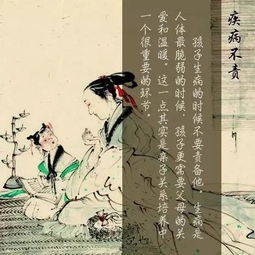 疾病不责
孩子生病的时候不要责备他，生病是
人体最脆弱的时候，孩子更需要父母的关
爱和温暖。这一点其实是亲子关系培养中
一个很重要的环节。